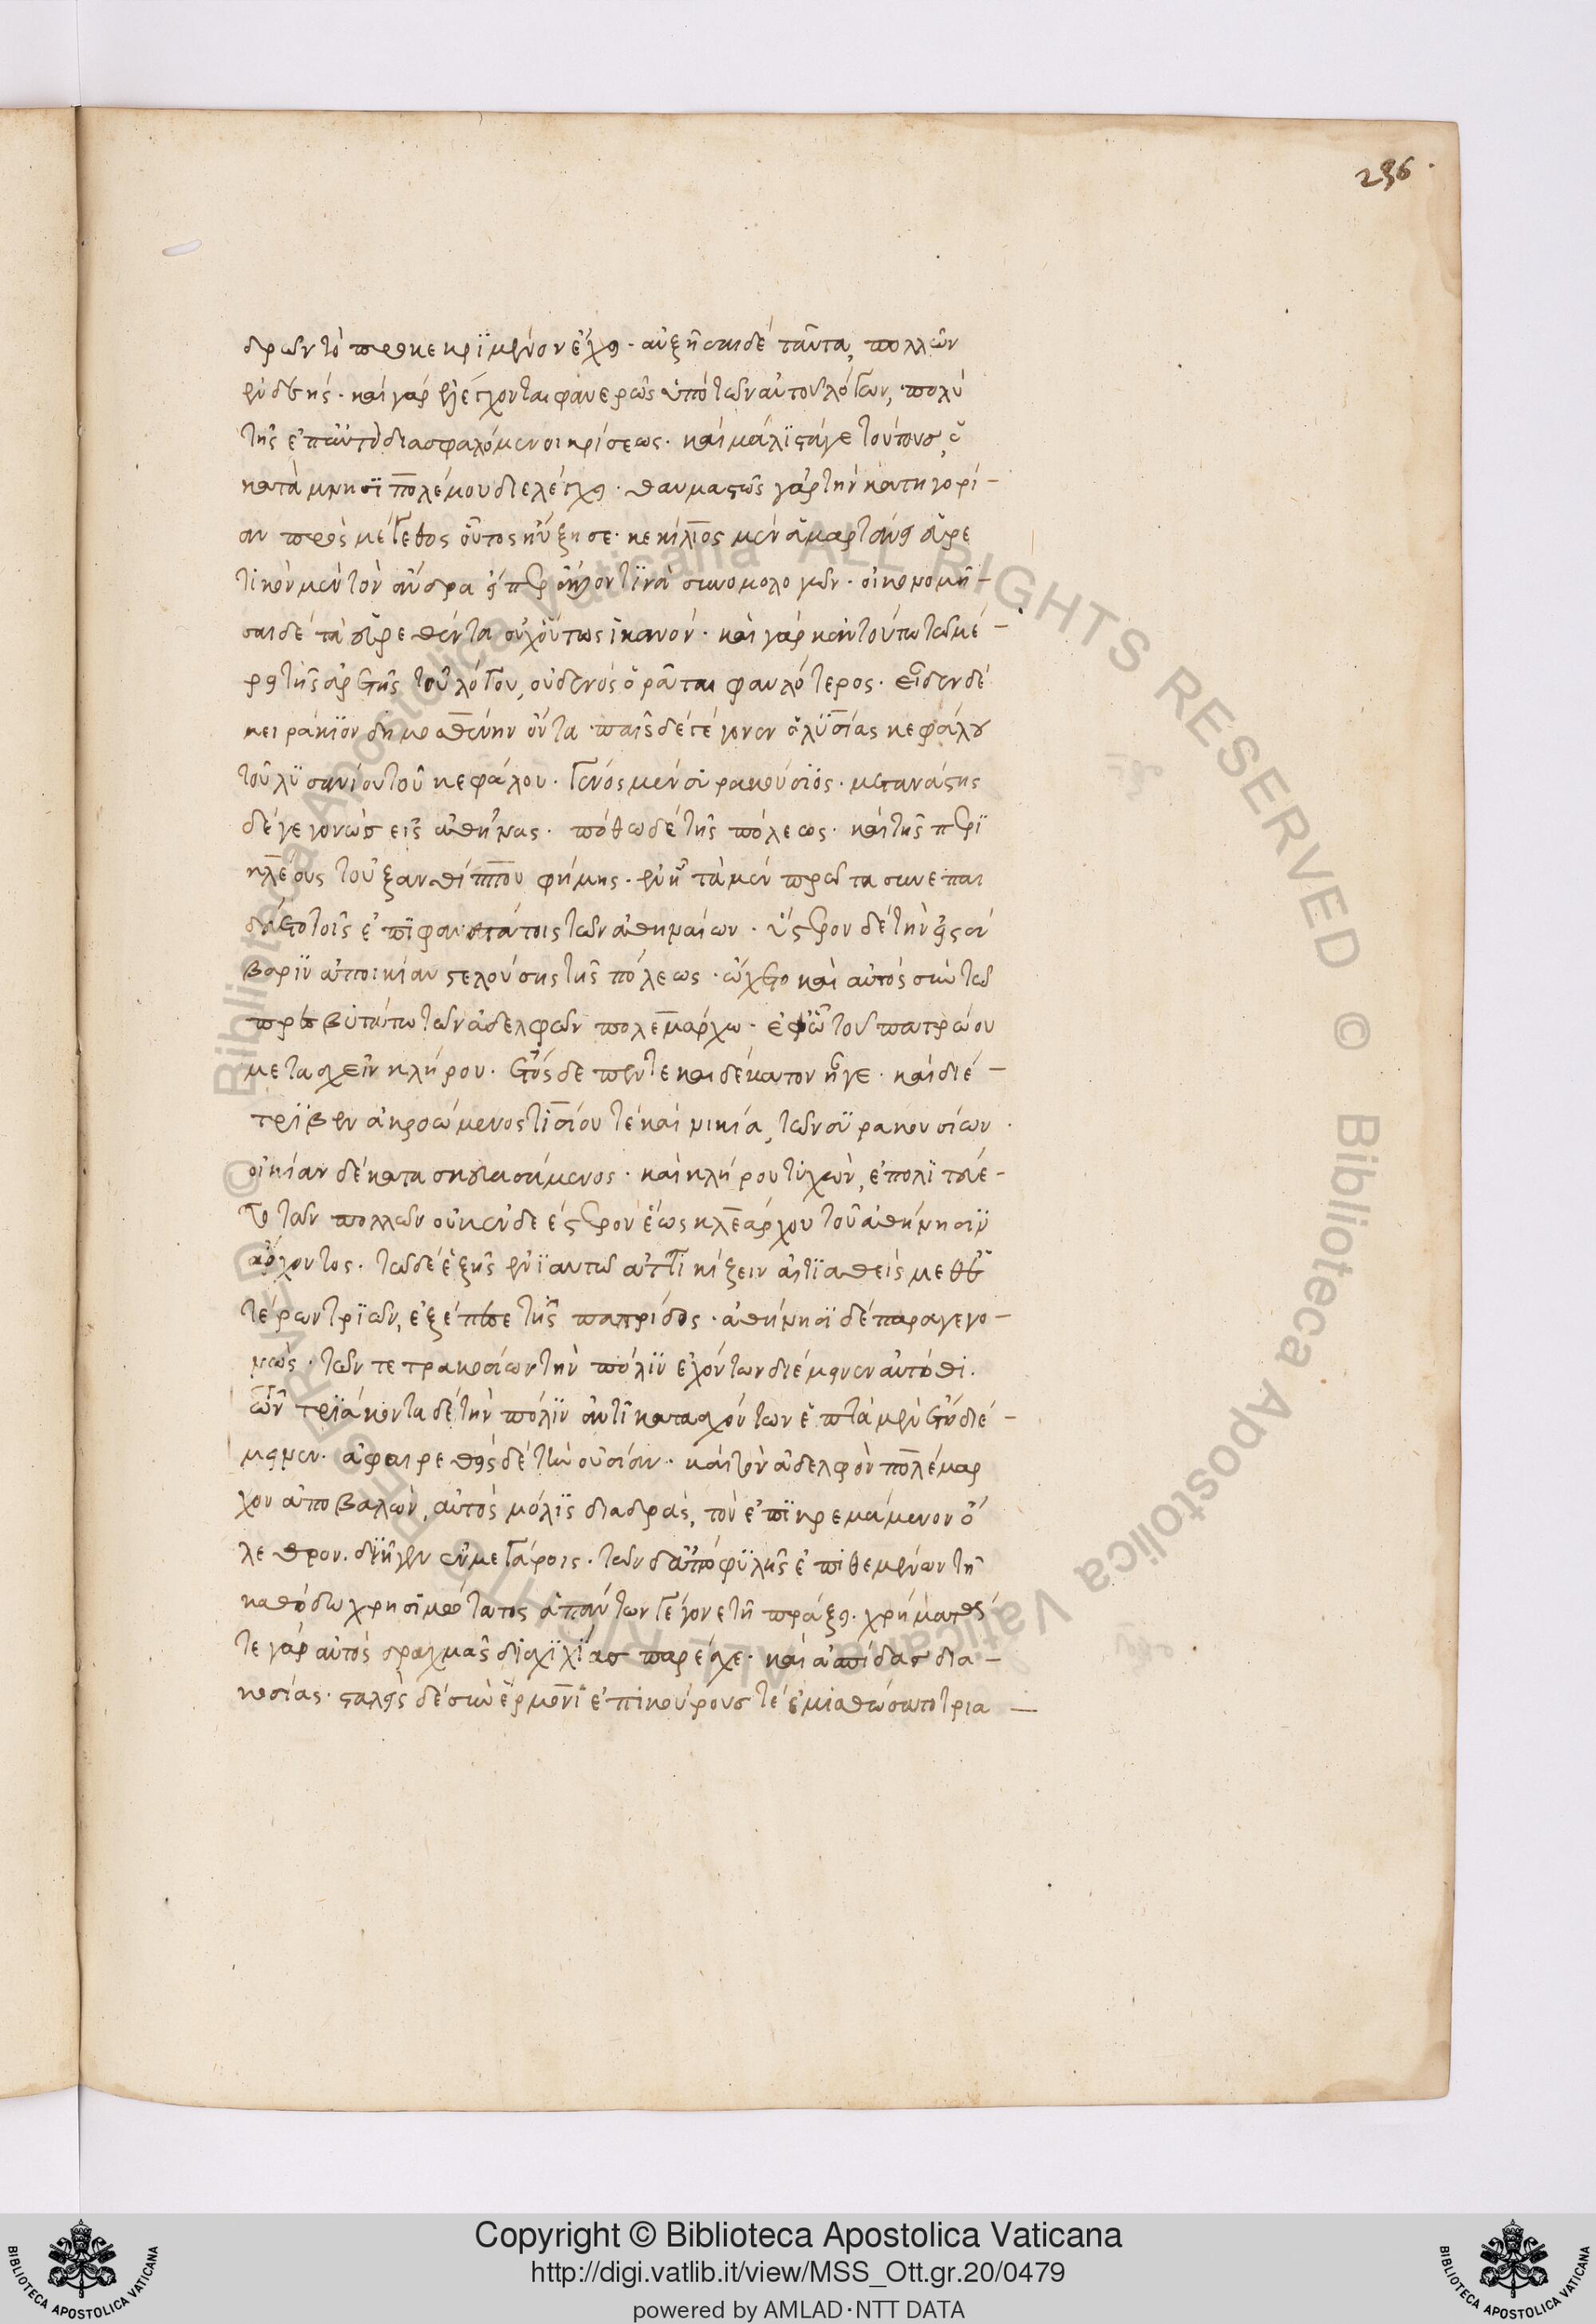 236
δρων τὸ προκεκρϊμένον ἔχει. αὐξῆσαι δὲ ταῦτα, πολλῶν
ἐνδεής. καὶ γὰρ ἐλέγχονται φανερῶς ὑπὸ τῶν αὐτοῦ λόγων, πολὺ
τῆς ἐπ αὐτῶ διασφαλόμενοι κρίσεως. καὶ μάλϊστάγε τούτους, ὁ
κατὰ μνησϊπολέμου διελέγχει. θαυμαστῶς γὰρ τὴν κατηγορί-
αν πρὸς μέγεθος οὗτος ηὔξησε. κεκίλιος μὲν ἁμαρτάνει εὑρε
τικὸν μὲν τὸν ἄνδρα εἴπερ ἄλλον τϊνὰ συνομολογῶν. οἰκονομῆ-
σαι δὲ τὰ εὑρεθέντα οὐχοὕτως ἱκανόν. καὶ γὰρ κἀν τούτω τῶ μέ-
ρει τῆς ἀρετῆς τοῦ λόγου, οὐδενὸς ὁρᾶται φαυλότερος. εἶδεν δὲ
μειράκϊον δημοσθένην ὄντα. παῖς δὲ γέγονεν ὁ λϋσίας κεφάλου
τοῦ λϋσανίου τοῦ κεφάλου. γένος μὲν σϋρακούσϊος. μετανάστης
δὲ γεγονὼσ εἰς ἀθήνας. πόθω δὲ τῆς πόλεως. καὶ τῆς περϊ
κλέους τοῦ ξανθίππου φήμης. ἐν ἧ τὰ μὲν πρῶτα συνεπαι
δεύετο τοῖς ἐπϊφανεστάτοις τῶν ἀθηναίων. ὕστερον δὲ τὴν εἰς σύ
βαρϊν ἀποικίαν στελούσης τῆς πόλεως. ὤχετο καὶ αὐτὸς σὺν τῶ
πρεσβυτάτω τῶν ἀδελφῶν πολεμάρχω. ἐφ ὧ τοῦ πατρώου
μετασχεῖν κλήρου. ἔτος δε πεντεκαιδέκατον ἦγε. καὶ διέ-
τρϊβεν ἀκροώμενος τισίου τὲ καὶ νικία, τῶν σϋρακουσίων.
οἰκίαν δὲ κατασκευασάμενος. καὶ κλήρου τυχὼν, ἐπολϊτεύε-
το τῶν πολλῶν οὐκ ἐνδεέστερον ἕως κλεάρχου τοῦ ἀθήνησϊν
ἄρχοντος. τῶ δὲ ἑξῆς ἐνϊαυτῶ ἀττικίζειν αἰτϊαθεὶς μεθ ἑ
τέρων τρϊῶν, ἐξέπεσε τῆς πατρίδος. ἀθήνησϊ δὲ παραγεγο-
νὼς. τῶν τετρακοσίων τὴν πόλϊν ἐχόντων διέμεινεν αὐτόθι.
τῶν τρϊάκοντα δὲ τὴν πόλϊν ἀντϊκατασχόντων ἑπτὰ μὲν ἔτη διέ-
μεινεν. ἀφαιρεθεὶς δὲ τὴν οὐσίαν. καὶ τὸν ἀδελφὸν πολέμαρ
χον ἀποβαλὼν, αὐτὸς μόλϊς διαδρὰς, τὸν ἐπϊκρεμάμενον ὄ
λεθρον. διῆγεν ἐν μεγάροις. τῶν δ ἀπὸ φϋλῆς ἐπιθεμένων τῆ
καθόδω χρησϊμώτατος ἁπάντων γέγονε τῆ πράξει. χρήματά
τε γὰρ αὐτὸς δραχμὰς δισχϊλίασ παρέσχε. καὶ ἀσπίδασ δια-
κοσίας. σταλεὶς δὲ σὺν ἑρμονϊ ἐπικούρουσ τὲ ἐμισθώσατο τρια-
Copyright © Biblioteca Apostolica Vaticana
http://digi.vatlib.it/view/MSS_Ott.gr.20/0479
powered by AMLAD·NTT DATA
BIBLIOTECA APOSTOLICA VATICANA
BIBLIOTECA APOSTOLICA VATICANA
© Biblioteca Apostolica Vaticana ALL RIGHTS RESERVED © Biblioteca Apostolica Vaticana ALL RIGHTS RESERVED